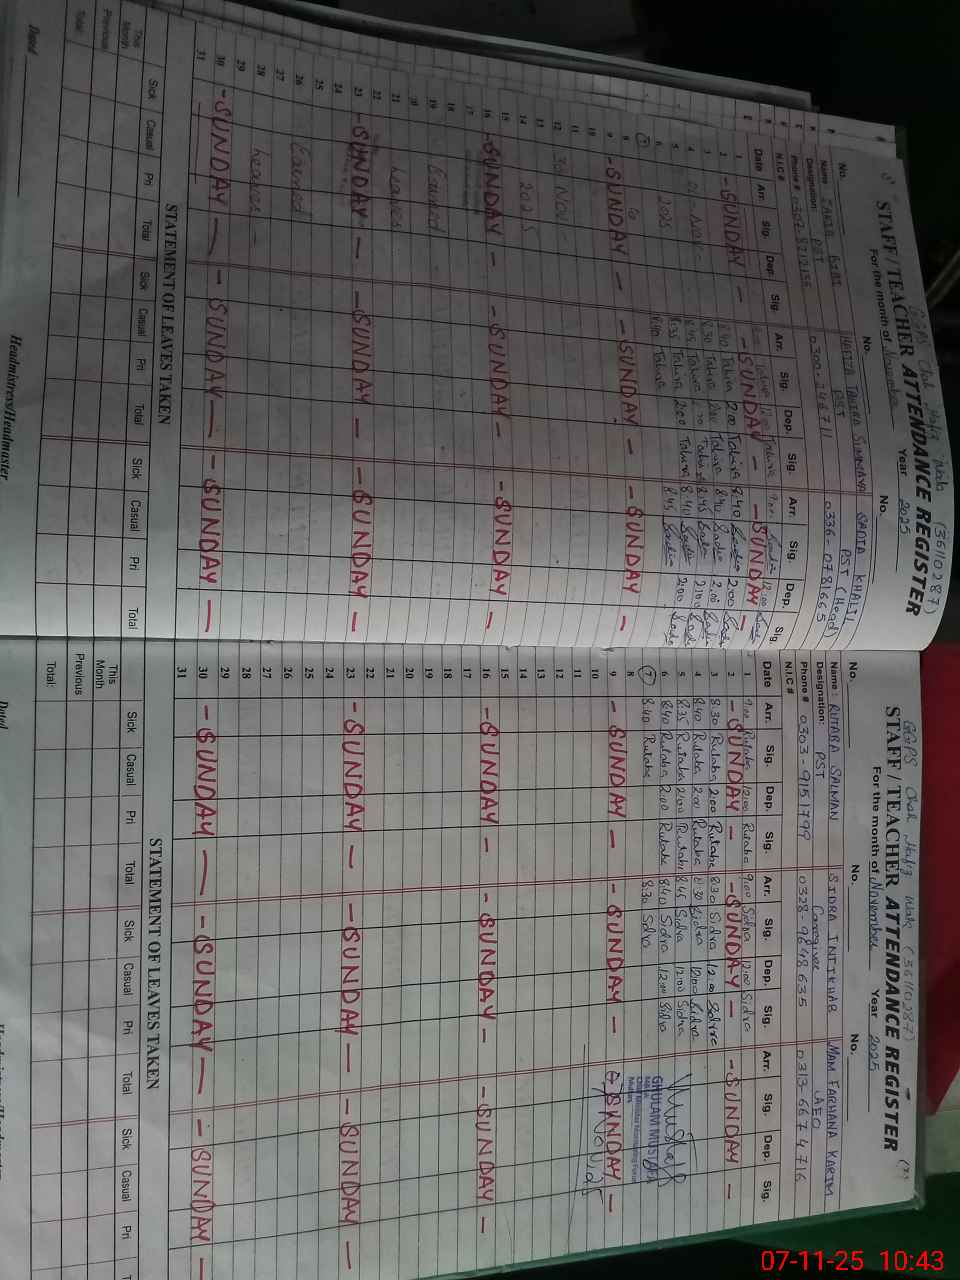 GGPS Chak Hafiz Wala (36110287)
STAFF / TEACHER ATTENDANCE REGISTER
For the month of November Year 2025
No. No. No.
Name FAKIA BIBI HAFIZA TAHIRA SUMMAYA SADIA KHALIL
Designation: PST PST PST (Head)
Phone # 0300-2448711 0336-0781665
N.I.C #
Date Arr. Sig. Dep. Sig. Arr. Sig. Dep. Sig. Arr. Sig. Dep. Sig.
1 Tahira 12:00 Tahira 9:00 Sadia 12:00 Sadia
2 -SUNDAY- -SUNDAY- -SUNDAY-
3 8:40 Tahira 2:00 Tahira 8:40 Sadia 2:00 Sadia
4 01-Nov- 8:30 Tahira 2:00 Tahira 8:40 Sadia 2:00 Sadia
5 8:45 Tahira 2:00 Tahira 8:45 Sadia 2:00 Sadia
6 2025 8:35 Tahira 2:00 Tahira 8:40 Sadia 2:00 Sadia
7 8:40 Tahira 8:45 Sadia
8 to
9 -SUNDAY- -SUNDAY- -SUNDAY-
10
11
12 30 Nov-
13
14 2025
15
16 -SUNDAY- -SUNDAY- -SUNDAY-
17
18
19 Earned
20
21 Leaves
22
23 -SUNDAY- -SUNDAY- -SUNDAY-
24
25
26 Earned
27
28 Leaves-
29
30 -SUNDAY- -SUNDAY- -SUNDAY-
31
STATEMENT OF LEAVES TAKEN
Sick Casual Pri Total Sick Casual Pri Total Sick Casual Pri Total
This Month
Previous
Total:
Dated
Headmistress/Headmaster
GGPS Chak Hafiz Wala (36110287)
STAFF / TEACHER ATTENDANCE REGISTER
For the month of November Year 2025
No. No. No.
Name: RUTABA SALMAN SIDRA INTIKHAB MAM FARHANA KARIM
Designation: PST Caregiver AEO
Phone # 0303-9151799 0328-9648635 0313-6674716
N.I.C #
Date Arr. Sig. Dep. Sig. Arr. Sig. Dep. Sig. Arr. Sig. Dep. Sig.
1 9:00 Rutaba 12:00 Rutaba 9:00 Sidra 12:00 Sidra
2 -SUNDAY- -SUNDAY- -SUNDAY-
3 8:30 Rutaba 2:00 Rutaba 8:30 Sidra 12:00 Sidra
4 8:40 Rutaba 2:00 Rutaba 8:30 Sidra 12:00 Sidra
5 8:35 Rutaba 2:00 Rutaba 8:45 Sidra 12:00 Sidra
6 8:40 Rutaba 2:00 Rutaba 8:40 Sidra 12:00 Sidra
7 8:40 Rutaba 8:30 Sidra
8
GHULAM MUSTAFA
9 -SUNDAY- -SUNDAY- -SUNDAY-
10
11
12
13
14
15
16 -SUNDAY- -SUNDAY- -SUNDAY-
17
18
19
20
21
22
23 -SUNDAY- -SUNDAY- -SUNDAY-
24
25
26
27
28
29
30 -SUNDAY- -SUNDAY- -SUNDAY-
31
STATEMENT OF LEAVES TAKEN
Sick Casual Pri Total Sick Casual Pri Total Sick Casual Pri T
This Month
Previous
Total:
Dated
07-11-25 10:43